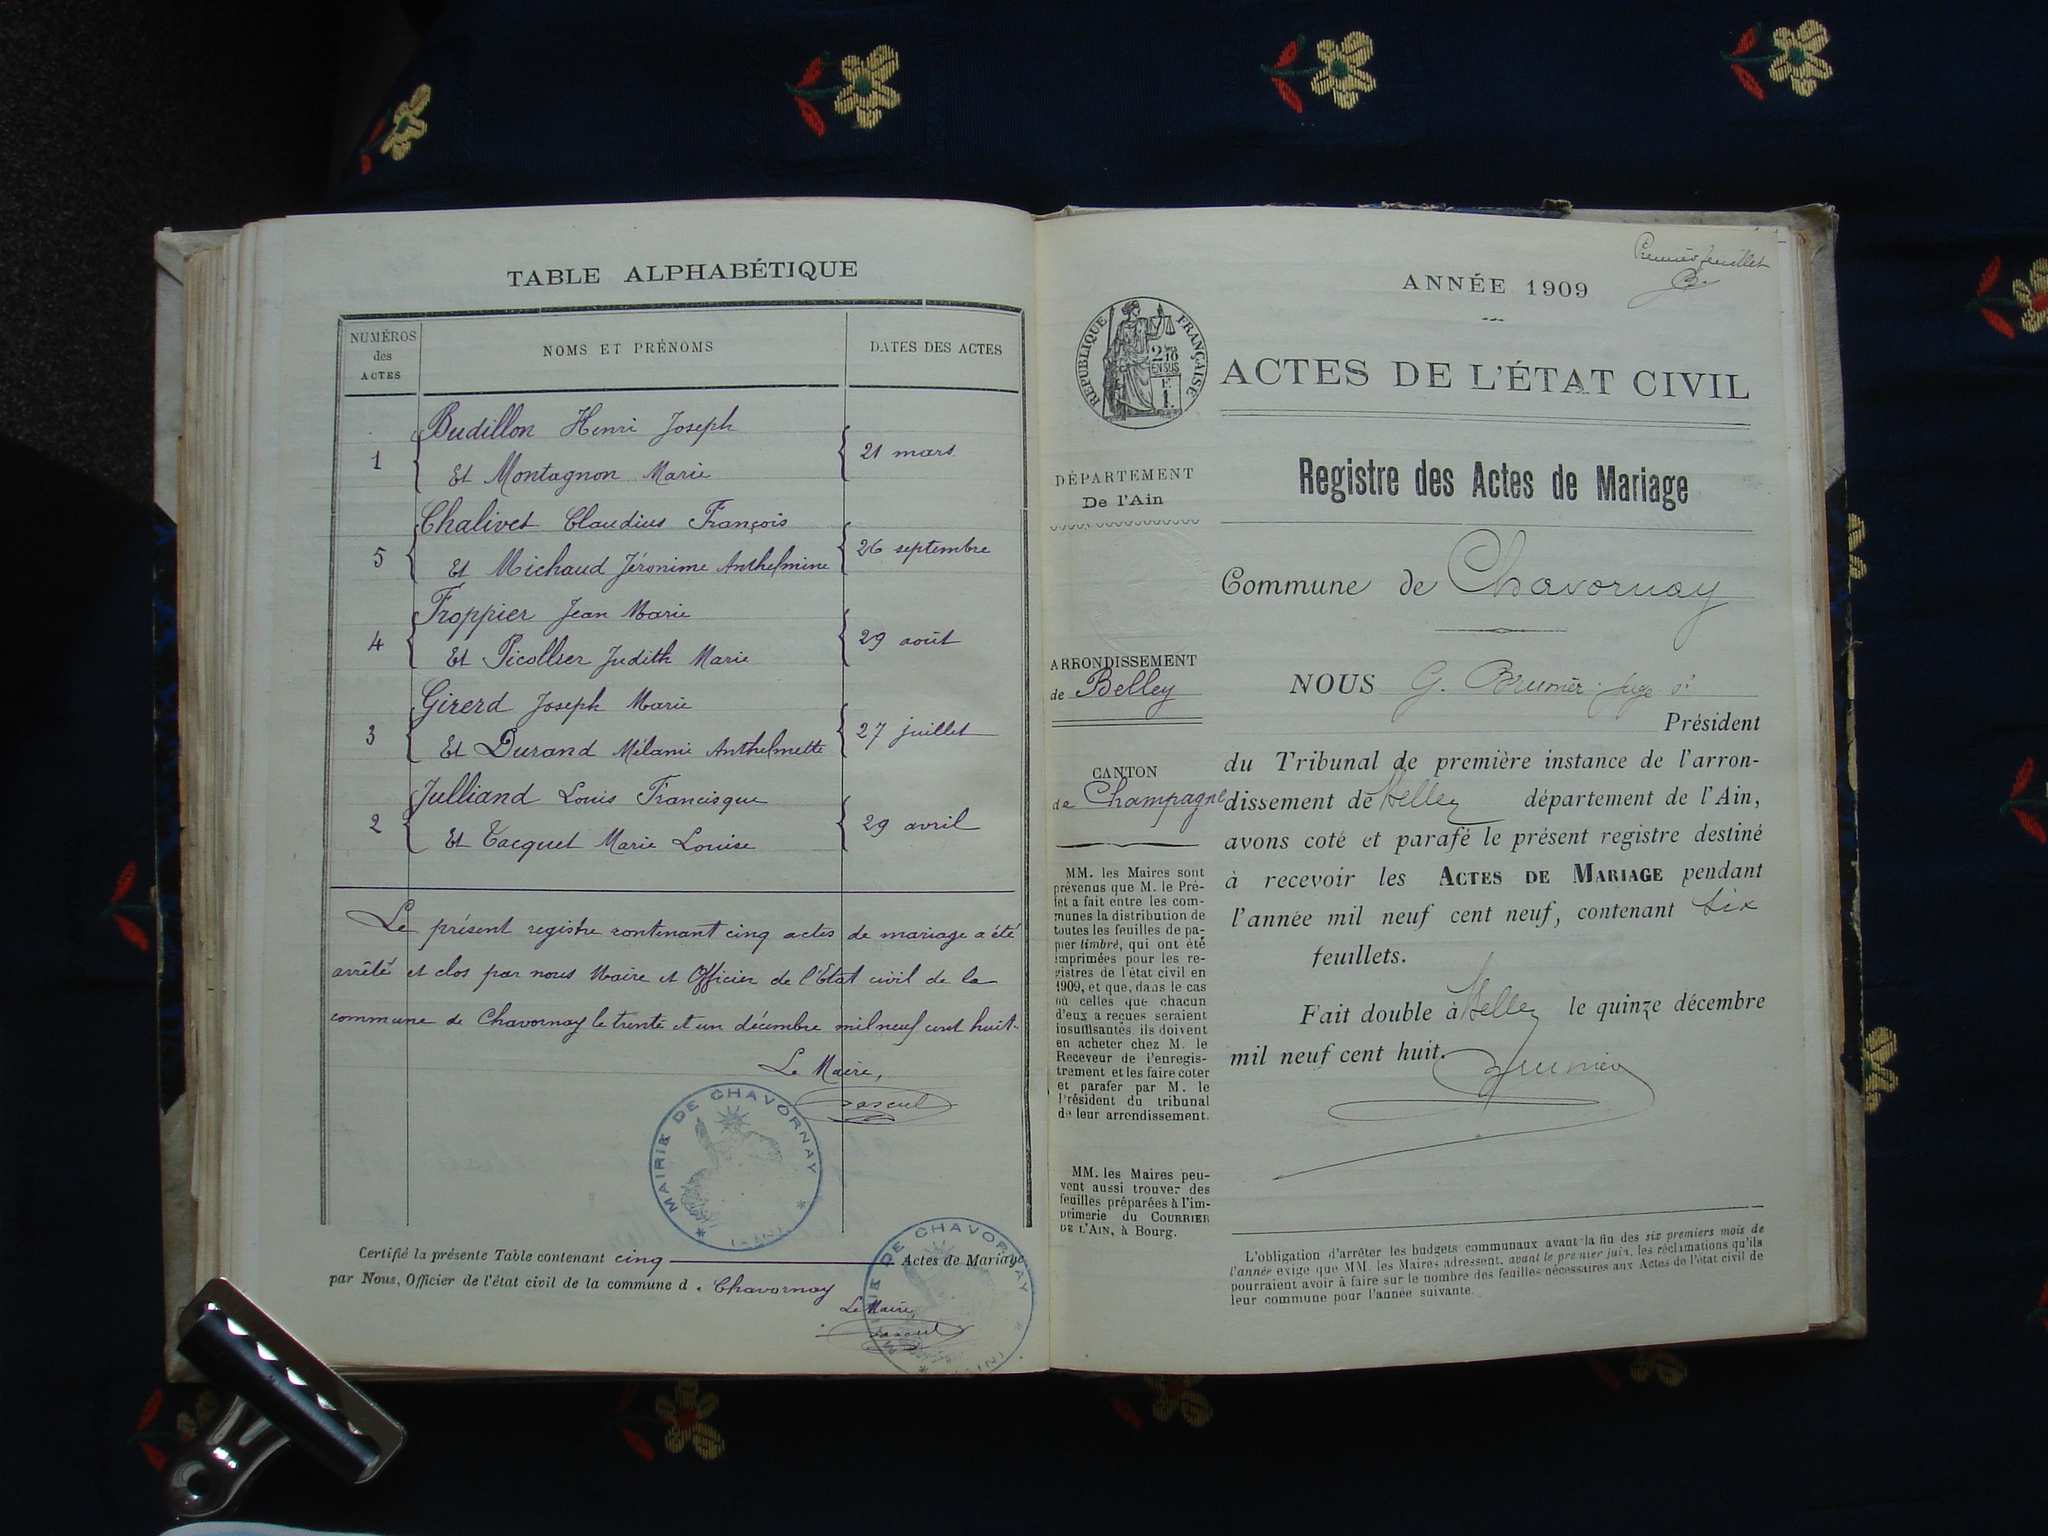 TABLE ALPHABÉTIQUE
NUMÉROS des ACTES
NOMS ET PRÉNOMS
DATES DES ACTES
1
Budillon Henri Joseph
Et Montagnon Marie
21 mars
5
Chalivet Claudius François
Et Michaud Jéronime Anthelmine
26 septembre
4
Froppier Jean Marie
Et Picollier Judith Marie
29 août
3
Girerd Joseph Marie
Et Durand Mélanie Anthelmette
27 juillet
2
Julliand Louis Francisque
Et Tacquet Marie Louise
29 avril
Le présent registre contenant cinq actes de mariage a été
arrêté et clos par nous Maire et Officier de l'Etat civil de la
commune de Chavornay le trente et un décembre mil neuf cent huit.
Le Maire,
MAIRIE DE CHAVORNAY
Certifié la présente Table contenant cinq Actes de Mariage
par Nous, Officier de l'état civil de la commune d. Chavornay
Le Maire,
MAIRIE DE CHAVORNAY
Premier feuillet
ANNÉE 1909
RÉPUBLIQUE FRANÇAISE
ACTES DE L'ÉTAT CIVIL
Registre des Actes de Mariage
DÉPARTEMENT
De l'Ain
Commune de Chavornay
ARRONDISSEMENT
de Belley
CANTON
de Champagne
MM. les Maires sont
prévenus que M. le Pré-
fet a fait entre les com-
munes la distribution de
toutes les feuilles de pa-
pier timbré, qui ont été
imprimées pour les re-
gistres de l'état civil en
1909, et que, dans le cas
où celles que chacun
d'eux a reçues seraient
insuffisantes, ils doivent
en acheter chez M. le
Receveur de l'enregis-
trement et les faire coter
et parafer par M. le
Président du tribunal
de leur arrondissement.
MM. les Maires peu-
vent aussi trouver des
feuilles préparées à l'im-
primerie du COURRIER
DE L'AIN, à Bourg.
NOUS G. Brunier juge
Président
du Tribunal de première instance de l'arron-
dissement de Belley département de l'Ain,
avons coté et parafé le présent registre destiné
à recevoir les ACTES DE MARIAGE pendant
l'année mil neuf cent neuf, contenant six
feuillets.
Fait double à Belley le quinze décembre
mil neuf cent huit.
Brunier
L'obligation d'arrêter les budgets communaux avant la fin des six premiers mois de
l'année exige que MM. les Maires adressent, avant le premier juin, les réclamations qu'ils
pourraient avoir à faire sur le nombre des feuilles nécessaires aux Actes de l'état civil de
leur commune pour l'année suivante.